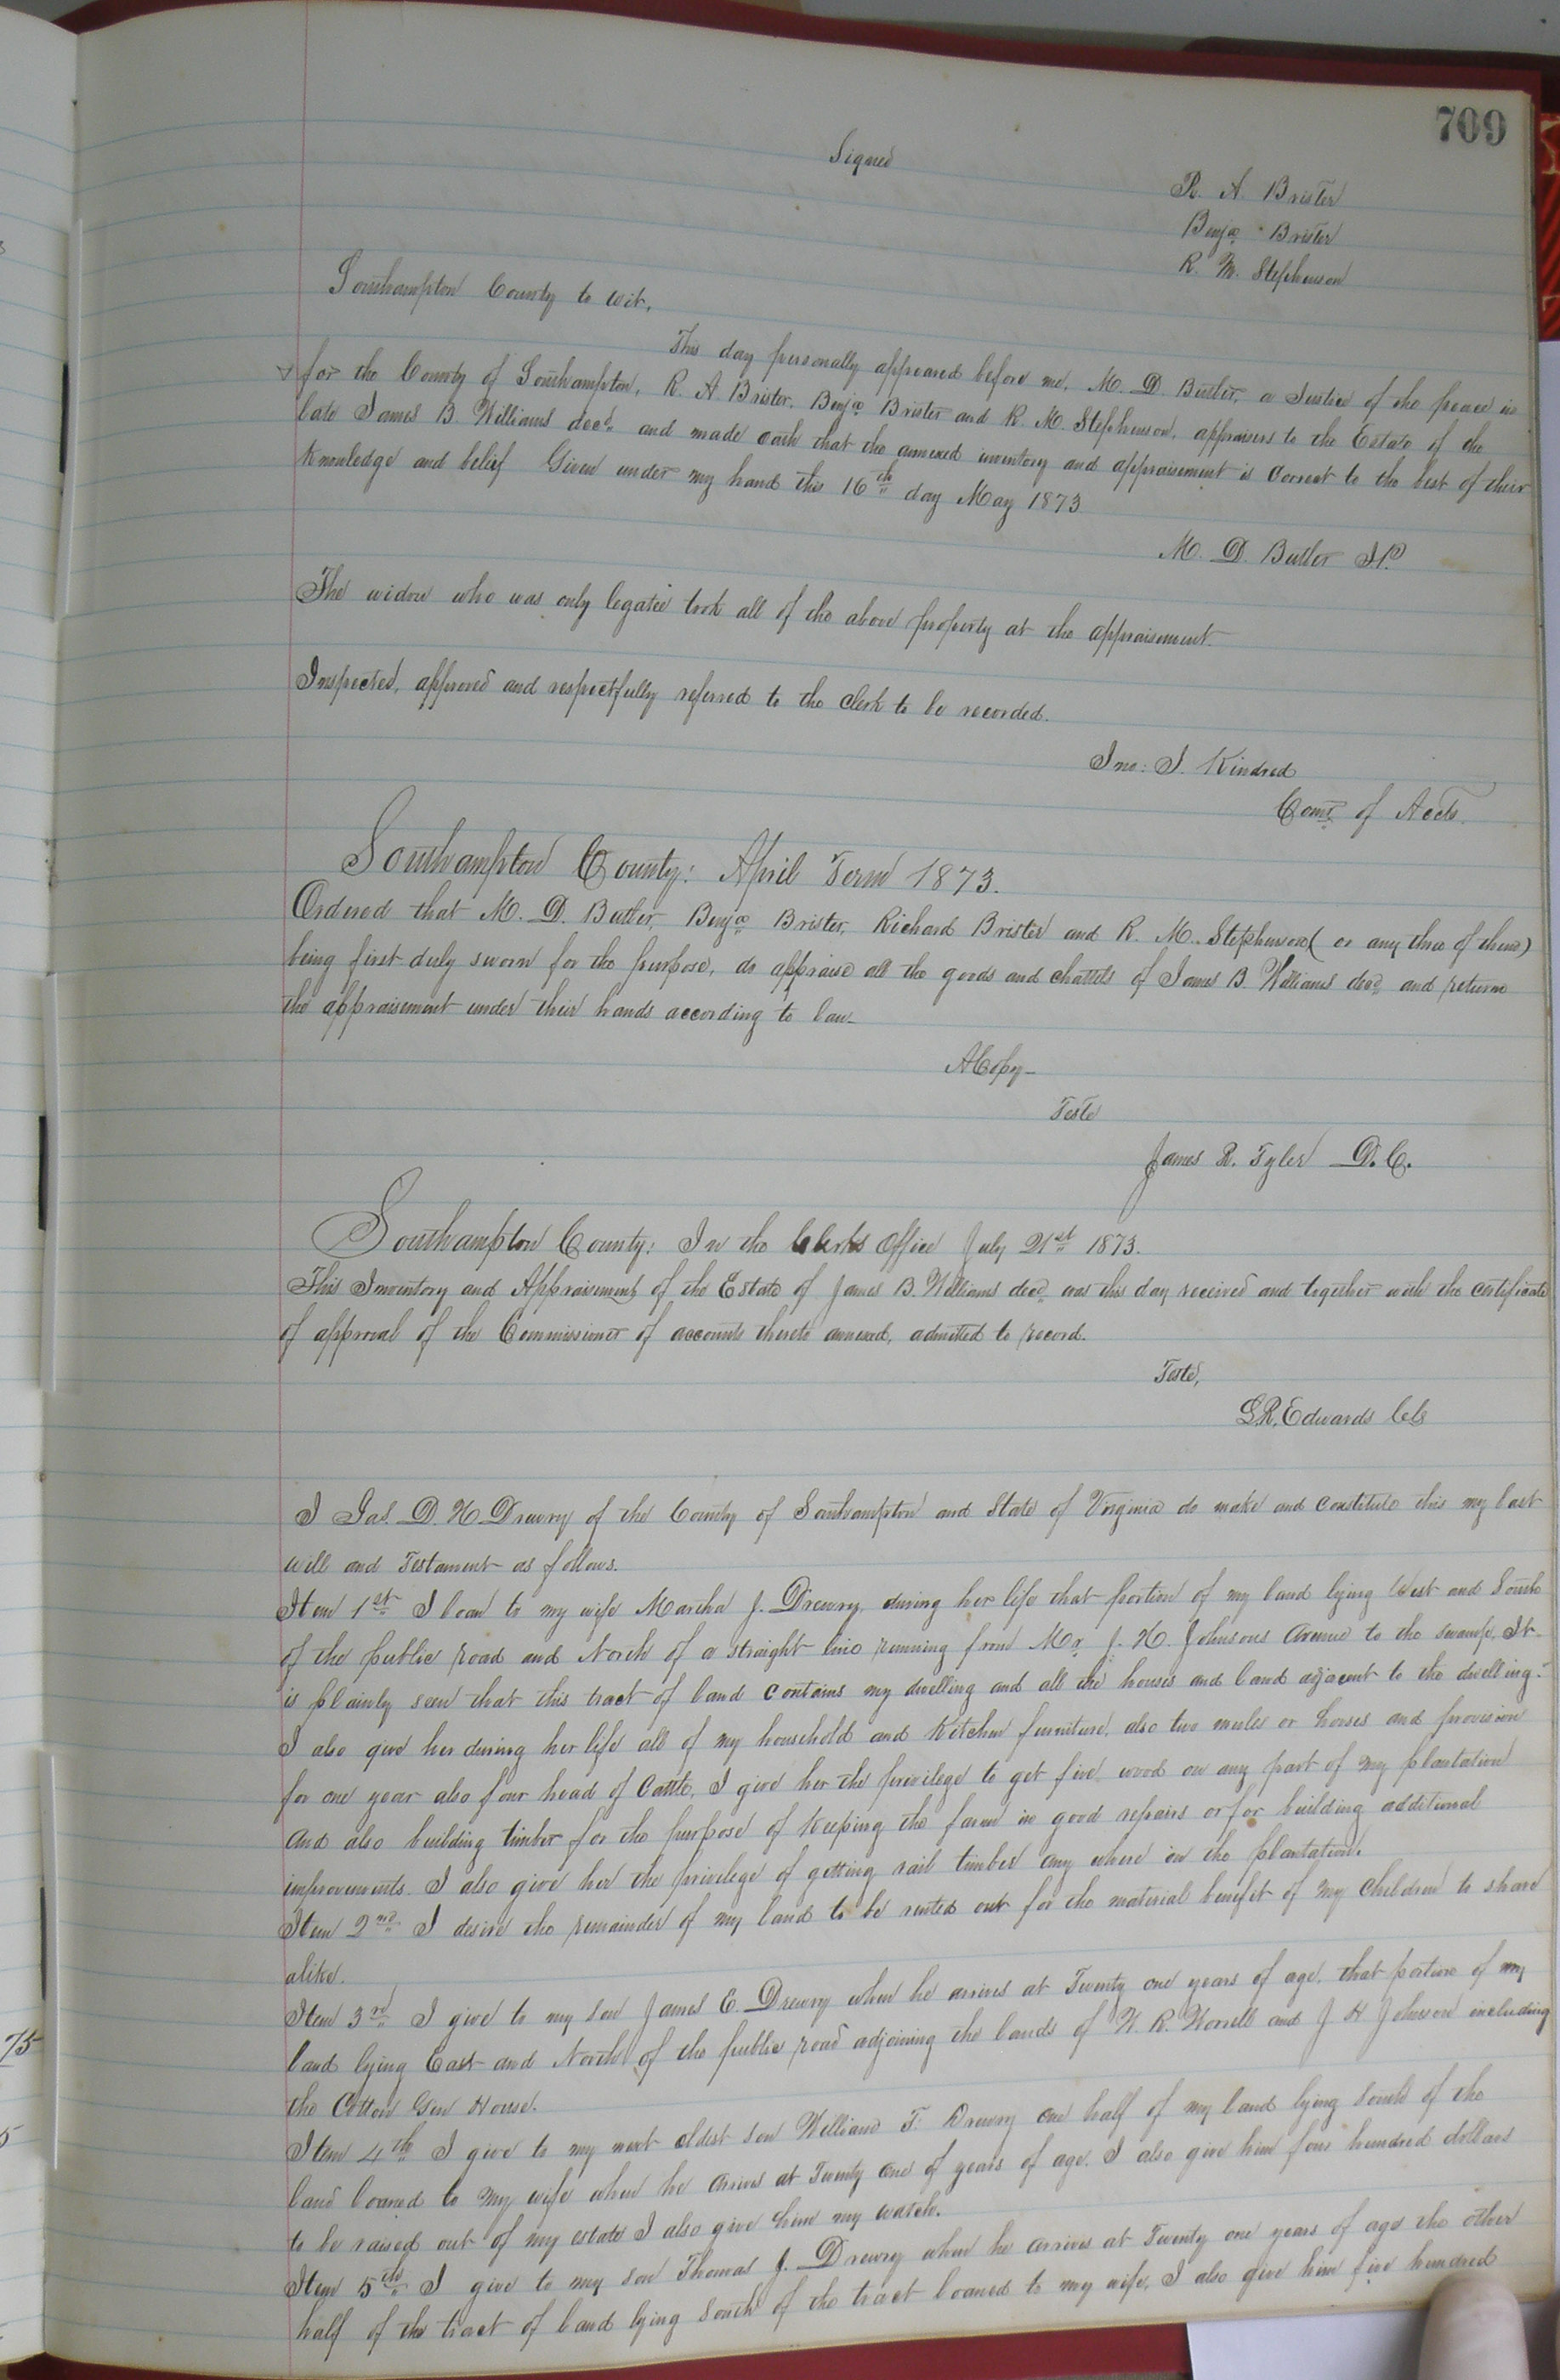 709
Signed
R. A. Brister
Benja Brister
R. M. Stephenson
Southampton County to wit,
This day personally appeared before me, M. D. Butler, a Justice of the peace in
for the County of Southampton, R. A. Brister, Benja Brister and R. M. Stephenson, appraisers to the Estate of the
late James B. Williams decd. and made oath that the annexed inventory and appraisement is correct to the best of their
knowledge and belief Given under my hand this 16th day May 1873
M. D. Butler J.P.
The widow who was only legatee took all of the above property at the appraisement.
Inspected, approved and respectfully referred to the clerk to be recorded.
Jno: J. Kindred
Comr. of Accts.
Southampton County: April Term 1873.
Ordered that M. D. Butler, Benja Brister, Richard Brister and R. M. Stephenson (or any three of them)
being first duly sworn for the purpose, do appraise all the goods and chattels of James B. Williams decd. and return
the appraisement under their hands according to law.
A Copy
Teste
James R. Tyler D.C.
Southampton County: In the Clerks Office July 21st 1873.
This Inventory and Appraisement of the Estate of James B. Williams decd. was this day received and together with the certificate
of approval of the Commissioner of accounts thereto annexed, admitted to record.
Teste,
L.R. Edwards Clk
I Jas. D. H. Drewry of the County of Southampton and State of Virginia do make and constitute this my last
will and Testament as follows.
Item 1st I loan to my wife Martha J. Drewry, during her life that portion of my land lying West and South
of the public road and North of a straight line running from Mr. J. H. Johnsons Avenue to the swamp, It
is plainly seen that this tract of land contains my dwelling and all the houses and land adjacent to the dwelling.
I also give her during her life all of my household and Kitchen furniture, also two mules or horses and provision
for one year also four head of Cattle, I give her the privilege to get fire wood on any part of my plantation
and also building timber for the purpose of keeping the farm in good repairs or for building additional
improvements. I also give her the privilege of getting rail timber any where on the plantation.
Item 2nd I desire the remainder of my land to be rented out for the material benefit of my children to share
alike.
Item 3rd I give to my son James E. Drewry when he arrives at Twenty one years of age, that portion of my
land lying East and North of the public road adjoining the lands of W. R. Worrell and J H Johnson including
the Cotton Gin House.
Item 4th I give to my next oldest son William F. Drewry one half of my land lying South of the
land loaned to my wife when he arrives at Twenty one of years of age. I also give him four hundred dollars
to be raised out of my estate I also give him my watch.
Item 5th I give to my son Thomas J. Drewry when he arrives at Twenty one years of age the other
half of the tract of land lying South of the tract loaned to my wife, I also give him five hundred
75
5